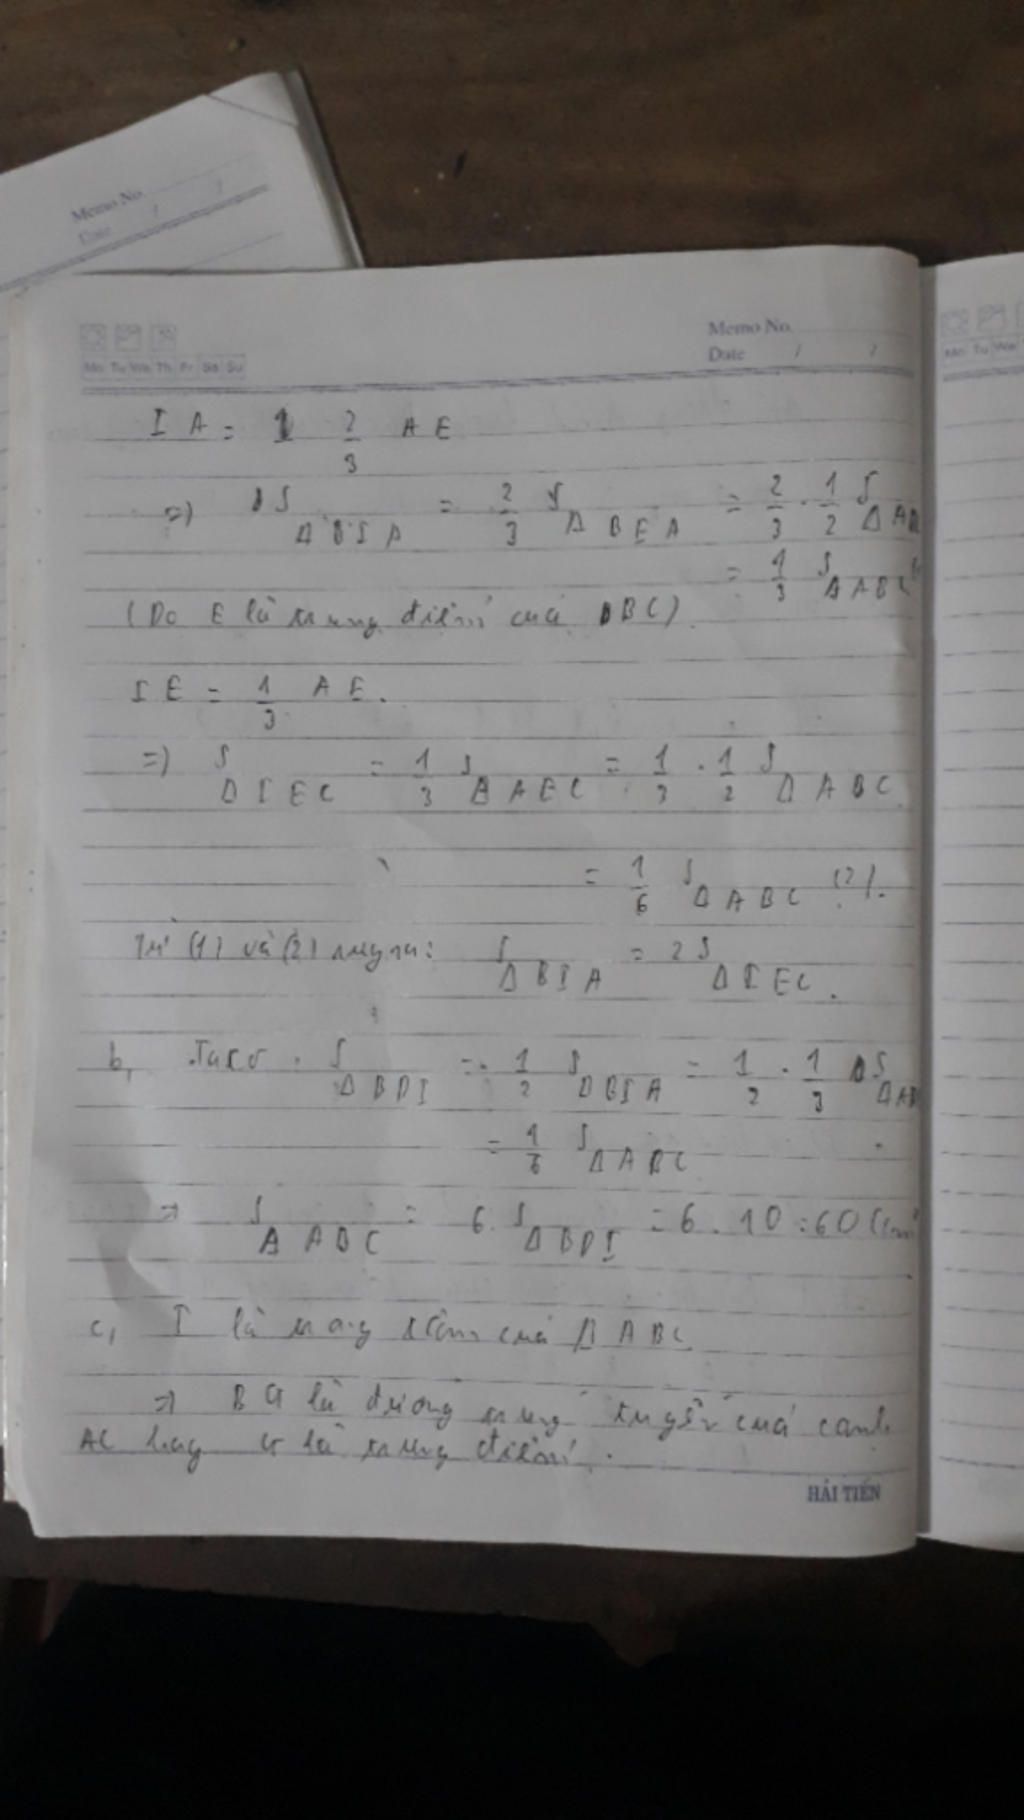 Memo No.
Date / /
Memo No.
Date / /
Mo Tu We Th Fr Sa Su
Mo Tu We
I A = 2/3 A E
=) S Δ B I A = 2/3 S Δ B E A = 2/3 . 1/2 S Δ AB
= 1/3 S Δ A B C
(Do E là trung điểm của BC)
I E = 1/3 A E.
=) S Δ I E C = 1/3 S Δ A E C = 1/3 . 1/2 S Δ A B C
= 1/6 S Δ A B C (2).
Từ (1) và (2) suy ra: S Δ B I A = 2 S Δ I E C.
b, Ta có . S Δ B D I = 1/2 S Δ B I A = 1/2 . 1/3 S Δ AB
= 1/6 S Δ A B C
=> S Δ A B C = 6. S Δ B D I = 6 . 10 = 60 (cm
c, I là trọng tâm của Δ A B C
=> B G là đường trung tuyến của cạnh
AC hay G là trung điểm .
HẢI TIẾN